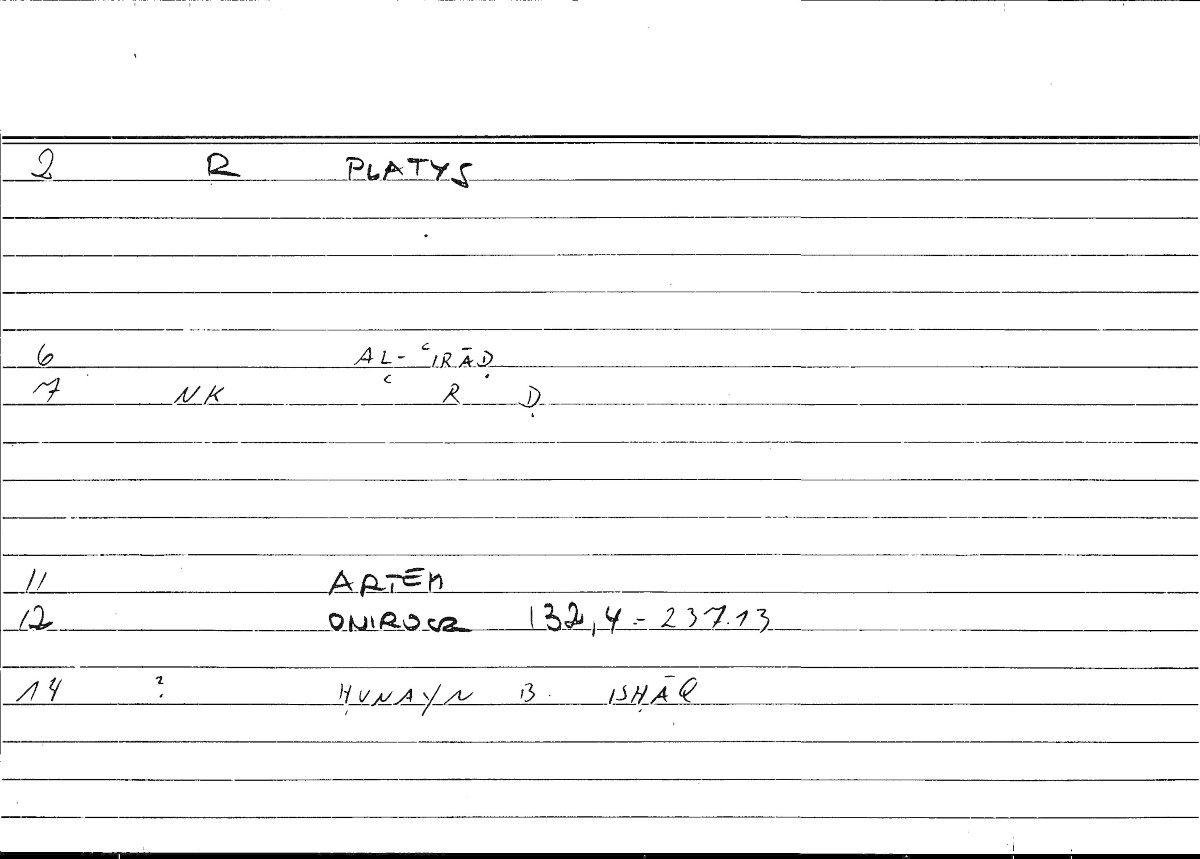 2 R PLATYS
6 AL-ʿIRĀḌ
7 NK ʿ R Ḍ
11 ARTEM
12 ONIROCR 132,4 = 237.13
14 ? ḤUNAYN B. ISḤĀQ